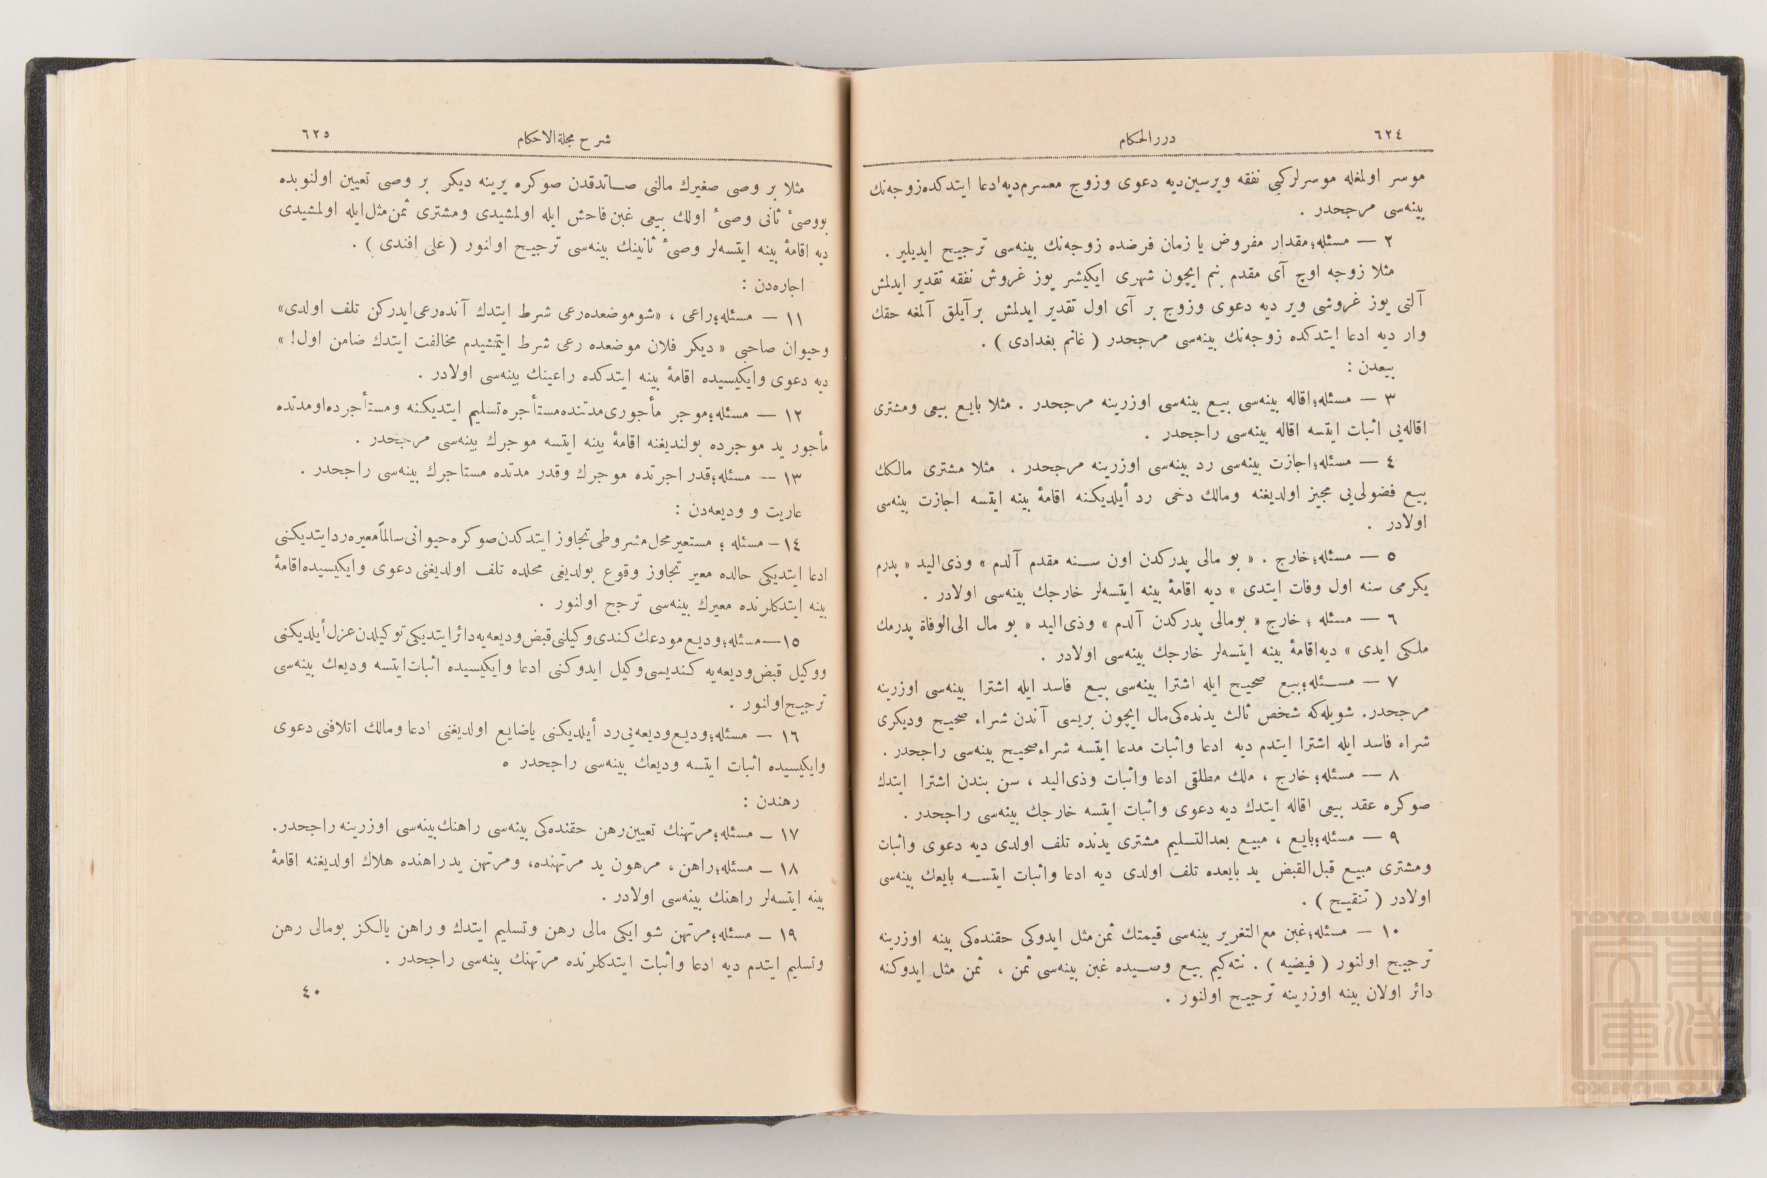 ٦٢٤
درر الحكام
موسر اولمغله موسرلركبى نفقه ويرسين ديه دعوى وزوج معسرم ديه ادعا ايتدكده زوجه‌نك
بينه‌سى مرجحدر .
٢ — مسئله؛ مقدار مفروض يا زمان فرضده زوجه‌نك بينه‌سى ترجيح ايديلير .
مثلا زوجه اوچ آى مقدم بنم ايچون شهرى ايكيشر يوز غروش نفقه تقدير ايدلمش
آلتى يوز غروشى وير ديه دعوى وزوج بر آى اول تقدير ايدلمش بر آيلق آلمغه حقك
وار ديه ادعا ايتدكده زوجه‌نك بينه‌سى مرجحدر ( غانم بغدادى ) .
بيعدن :
٣ — مسئله؛ اقاله بينه‌سى بيع بينه‌سى اوزرينه مرجحدر . مثلا بايع بيعى ومشترى
اقاله‌يى اثبات ايتسه اقاله بينه‌سى راجحدر .
٤ — مسئله؛ اجازت بينه‌سى رد بينه‌سى اوزرينه مرجحدر . مثلا مشترى مالكك
بيع فضولى‌يى مجيز اولديغنه ومالك دخى رد أيلديكنه اقامهٔ بينه ايتسه اجازت بينه‌سى
اولادر .
٥ — مسئله؛ خارج . « بو مالى پدركدن اون سنه مقدم آلدم » وذى‌اليد « پدرم
يكرمى سنه اول وفات ايتدى » ديه اقامهٔ بينه ايتسه‌لر خارجك بينه‌سى اولادر .
٦ — مسئله ؛ خارج « بومالى پدركدن آلدم » وذى‌اليد « بو مال الى‌الوفاة پدرمك
ملكى ايدى » ديه اقامهٔ بينه ايتسه‌لر خارجك بينه‌سى اولادر .
٧ — مسئله؛ بيع صحيح ايله اشترا بينه‌سى بيع فاسد ايله اشترا بينه‌سى اوزرينه
مرجحدر. شويله‌كه شخص ثالث يدنده‌كى مال ايچون بريسى آندن شراء صحيح وديكرى
شراء فاسد ايله اشترا ايتدم ديه ادعا واثبات مدعا ايتسه شراء صحيح بينه‌سى راجحدر .
٨ — مسئله؛ خارج ، ملك مطلقى ادعا واثبات وذى‌اليد ، سن بندن اشترا ايتدك
صوكره عقد بيعى اقاله ايتدك ديه دعوى واثبات ايتسه خارجك بينه‌سى راجحدر .
٩ — مسئله؛ بايع ، مبيع بعدالتسليم مشترى يدنده تلف اولدى ديه دعوى واثبات
ومشترى مبيع قبل‌القبض يد بايعده تلف اولدى ديه ادعا واثبات ايتسه بايعك بينه‌سى
اولادر ( تنقيح ) .
١٠ — مسئله؛ غبن مع‌التغرير بينه‌سى قيمتك ثمن مثل ايدوكى حقنده‌كى بينه اوزرينه
ترجيح اولنور ( فيضيه ) . نته‌كيم بيع وصيده غبن بينه‌سى ثمن ، ثمن مثل ايدوكنه
دائر اولان بينه اوزرينه ترجيح اولنور .
شرح مجلةالاحكام
٦٢٥
مثلا بر وصى صغيرك مالنى صاتدقدن صوكره يرينه ديكر بر وصى تعيين اولنوبده
بووصئ ثانى وصئ اولك بيعى غبن فاحش ايله اولمشيدى ومشترى ثمن مثل ايله اولمشيدى
ديه اقامهٔ بينه ايتسه‌لر وصئ ثانينك بينه‌سى ترجيح اولنور ( على افندى ) .
اجاره‌دن :
١١ — مسئله؛ راعى ، «شو موضعده رعى شرط ايتدك آنده رعى ايدركن تلف اولدى»
وحيوان صاحبى « ديكر فلان موضعده رعى شرط ايتمشيدم مخالفت ايتدك ضامن اول! »
ديه دعوى وايكيسيده اقامهٔ بينه ايتدكده راعينك بينه‌سى اولادر .
١٢ — مسئله؛ موجر مأجورى مدتنده مستأجره تسليم ايتديكنه ومستأجرده او مدتده
مأجور يد موجرده بولنديغنه اقامهٔ بينه ايتسه موجرك بينه‌سى مرجحدر .
١٣ — مسئله؛ قدر اجرتده موجرك وقدر مدتده مستاجرك بينه‌سى راجحدر .
عاريت و وديعه‌دن :
١٤ — مسئله ؛ مستعير محل مشروطى تجاوز ايتدكدن صوكره حيوانى سالماً معيره رد ايتديكنى
ادعا ايتديكى حالده معير تجاوز وقوع بولديغى محلده تلف اولديغنى دعوى وايكيسيده اقامهٔ
بينه ايتدكلرنده معيرك بينه‌سى ترجح اولنور .
١٥ — مسئله؛ وديع مودعك كندى وكيلنى قبض وديعه‌يه دائر ايتديكى توكيلدن عزل أيلديكنى
ووكيل قبض وديعه‌يه كنديسى وكيل ايدوكنى ادعا وايكيسيده اثبات ايتسه وديعك بينه‌سى
ترجيح اولنور .
١٦ — مسئله؛ وديع وديعه‌يى رد أيلديكنى ياضايع اولديغنى ادعا ومالك اتلافنى دعوى
وايكيسيده اثبات ايتسه وديعك بينه‌سى راجحدر ه
رهندن :
١٧ — مسئله؛ مرتهنك تعيين رهن حقنده‌كى بينه‌سى راهنك بينه‌سى اوزرينه راجحدر.
١٨ — مسئله؛ راهن ، مرهون يد مرتهنده، ومرتهن يد راهنده هلاك اولديغنه اقامهٔ
بينه ايتسه‌لر راهنك بينه‌سى اولادر .
١٩ — مسئله؛ مرتهن شو ايكى مالى رهن وتسليم ايتدك و راهن يالكز بومالى رهن
وتسليم ايتدم ديه ادعا واثبات ايتدكلرنده مرتهنك بينه‌سى راجحدر .
٤٠
TOYO BUNKO
東洋文庫
TOYO BUNKO